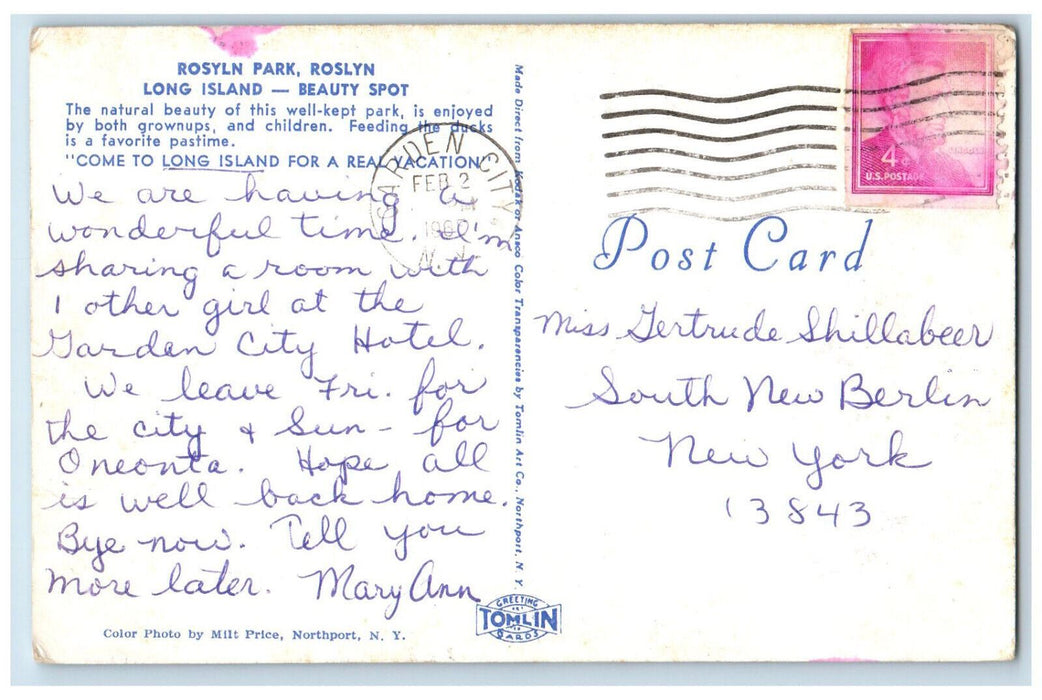 ROSYLN PARK, ROSLYN
LONG ISLAND — BEAUTY SPOT
The natural beauty of this well-kept park, is enjoyed
by both grownups, and children. Feeding the ducks
is a favorite pastime.
"COME TO LONG ISLAND FOR A REAL VACATION"
We are having a
wonderful time. I'm
sharing a room with
1 other girl at the
Garden City Hotel.
We leave Fri. for
the city & Sun - for
Oneonta. Hope all
is well back home.
Bye now. Tell you
more later. Mary Ann
Color Photo by Milt Price, Northport, N. Y.
Made Direct from Kodak or Ansco Color Transparencies by Tomlin Art Co., Northport, N. Y.
GREETING
TOMLIN
CARDS
GARDEN CITY
FEB 2
N.Y.
4¢
U.S. POSTAGE
LINCOLN
Post Card
Miss Gertrude Shillabeer
South New Berlin
New York
13843